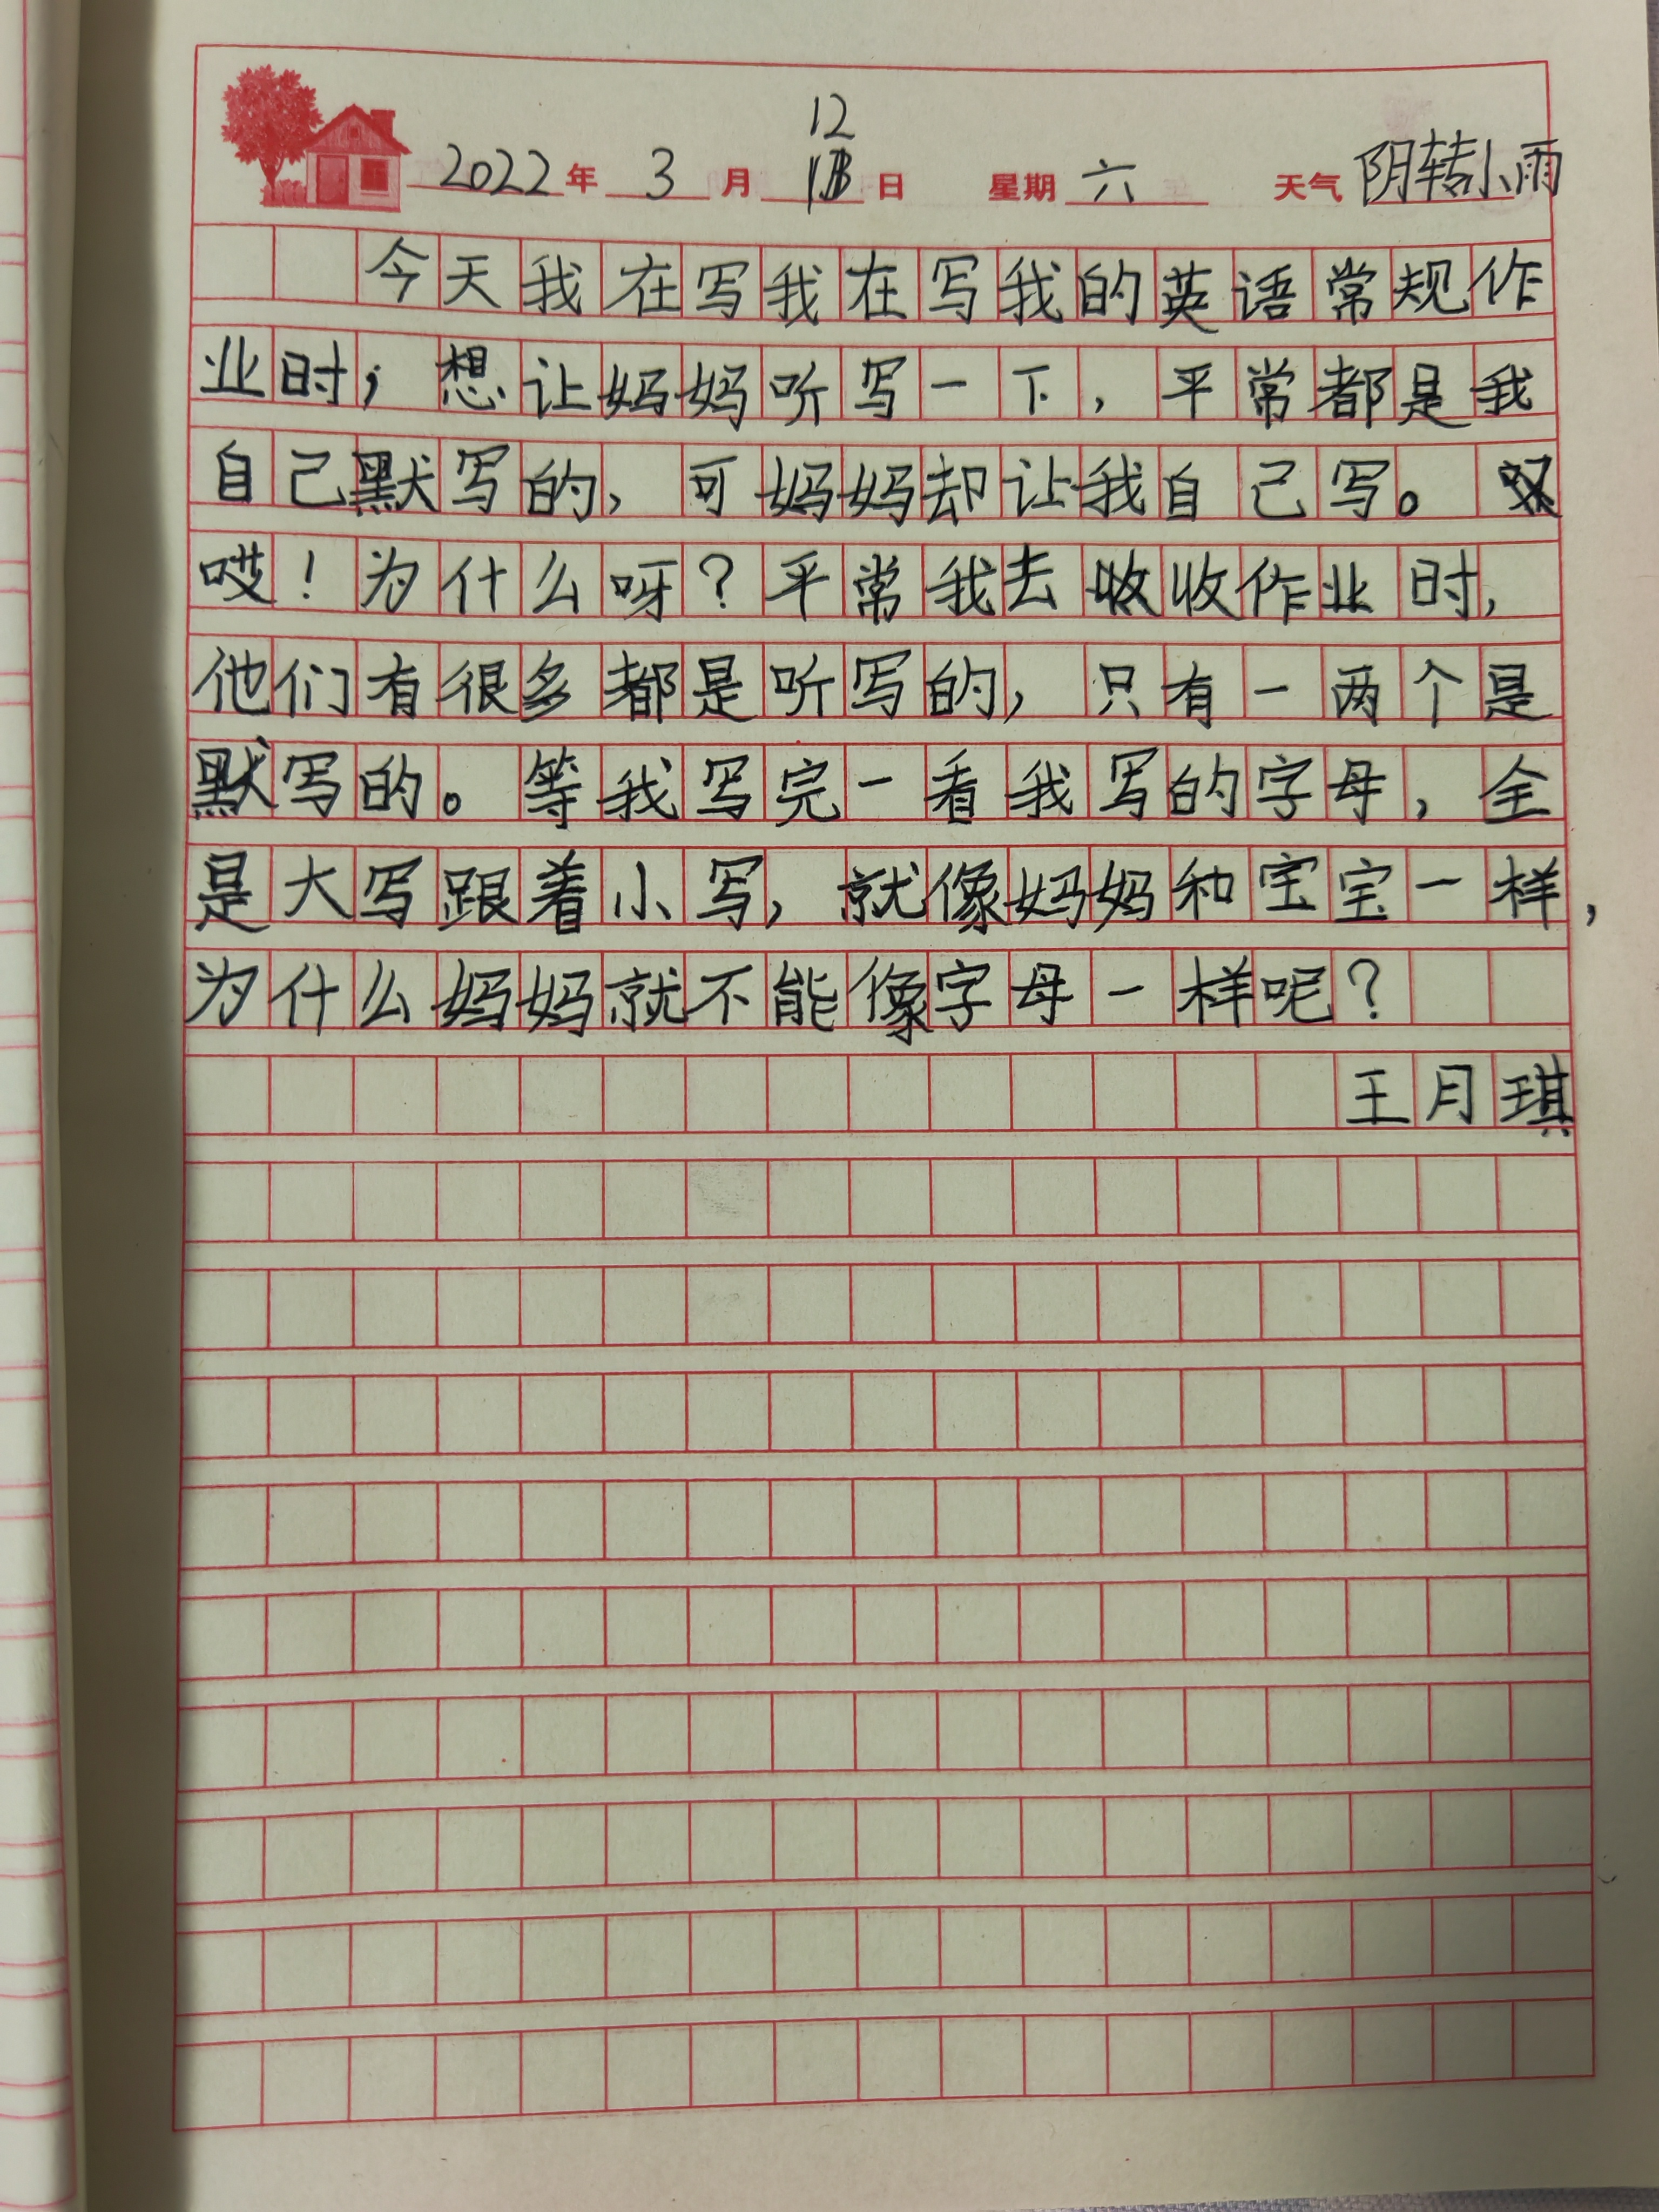 12
2022年3月日 星期六 天气阴转小雨
今天我在写我在写我的英语常规作
业时，想让妈妈听写一下，平常都是我
自己默写的，可妈妈却让我自己写。
哎！为什么呀？平常我去收收作业时，
他们有很多都是听写的，只有一两个是
默写的。等我写完一看我写的字母，全
是大写跟着小写，就像妈妈和宝宝一样，
为什么妈妈就不能像字母一样呢？
王月琪